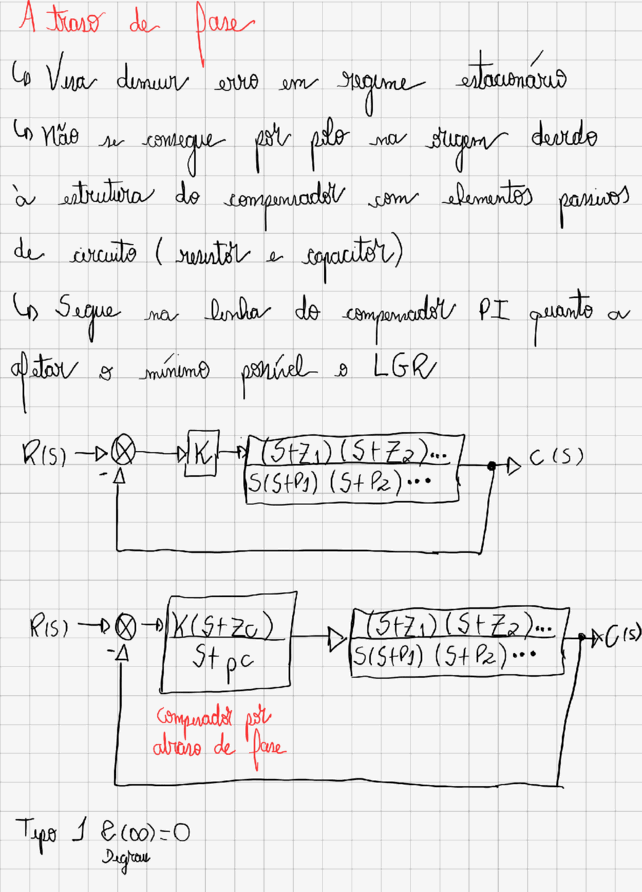 Atraso de fase
↳ Visa diminuir erro em regime estacionário
↳ Não se consegue por pólo na origem devido
à estrutura do compensador com elementos passivos
de circuito (resistor e capacitor)
↳ Segue na linha do compensador PI quanto a
afetar o mínimo possível o LGR
R(S) K (S+Z1)(S+Z2)... C(S)
- S(S+P1)(S+P2)...
R(S) K(S+Zc) (S+Z1)(S+Z2)... C(S)
- S+pc S(S+P1)(S+P2)...
Compensador por
atraso de fase
Tipo 1 e(∞)=0
Degrau